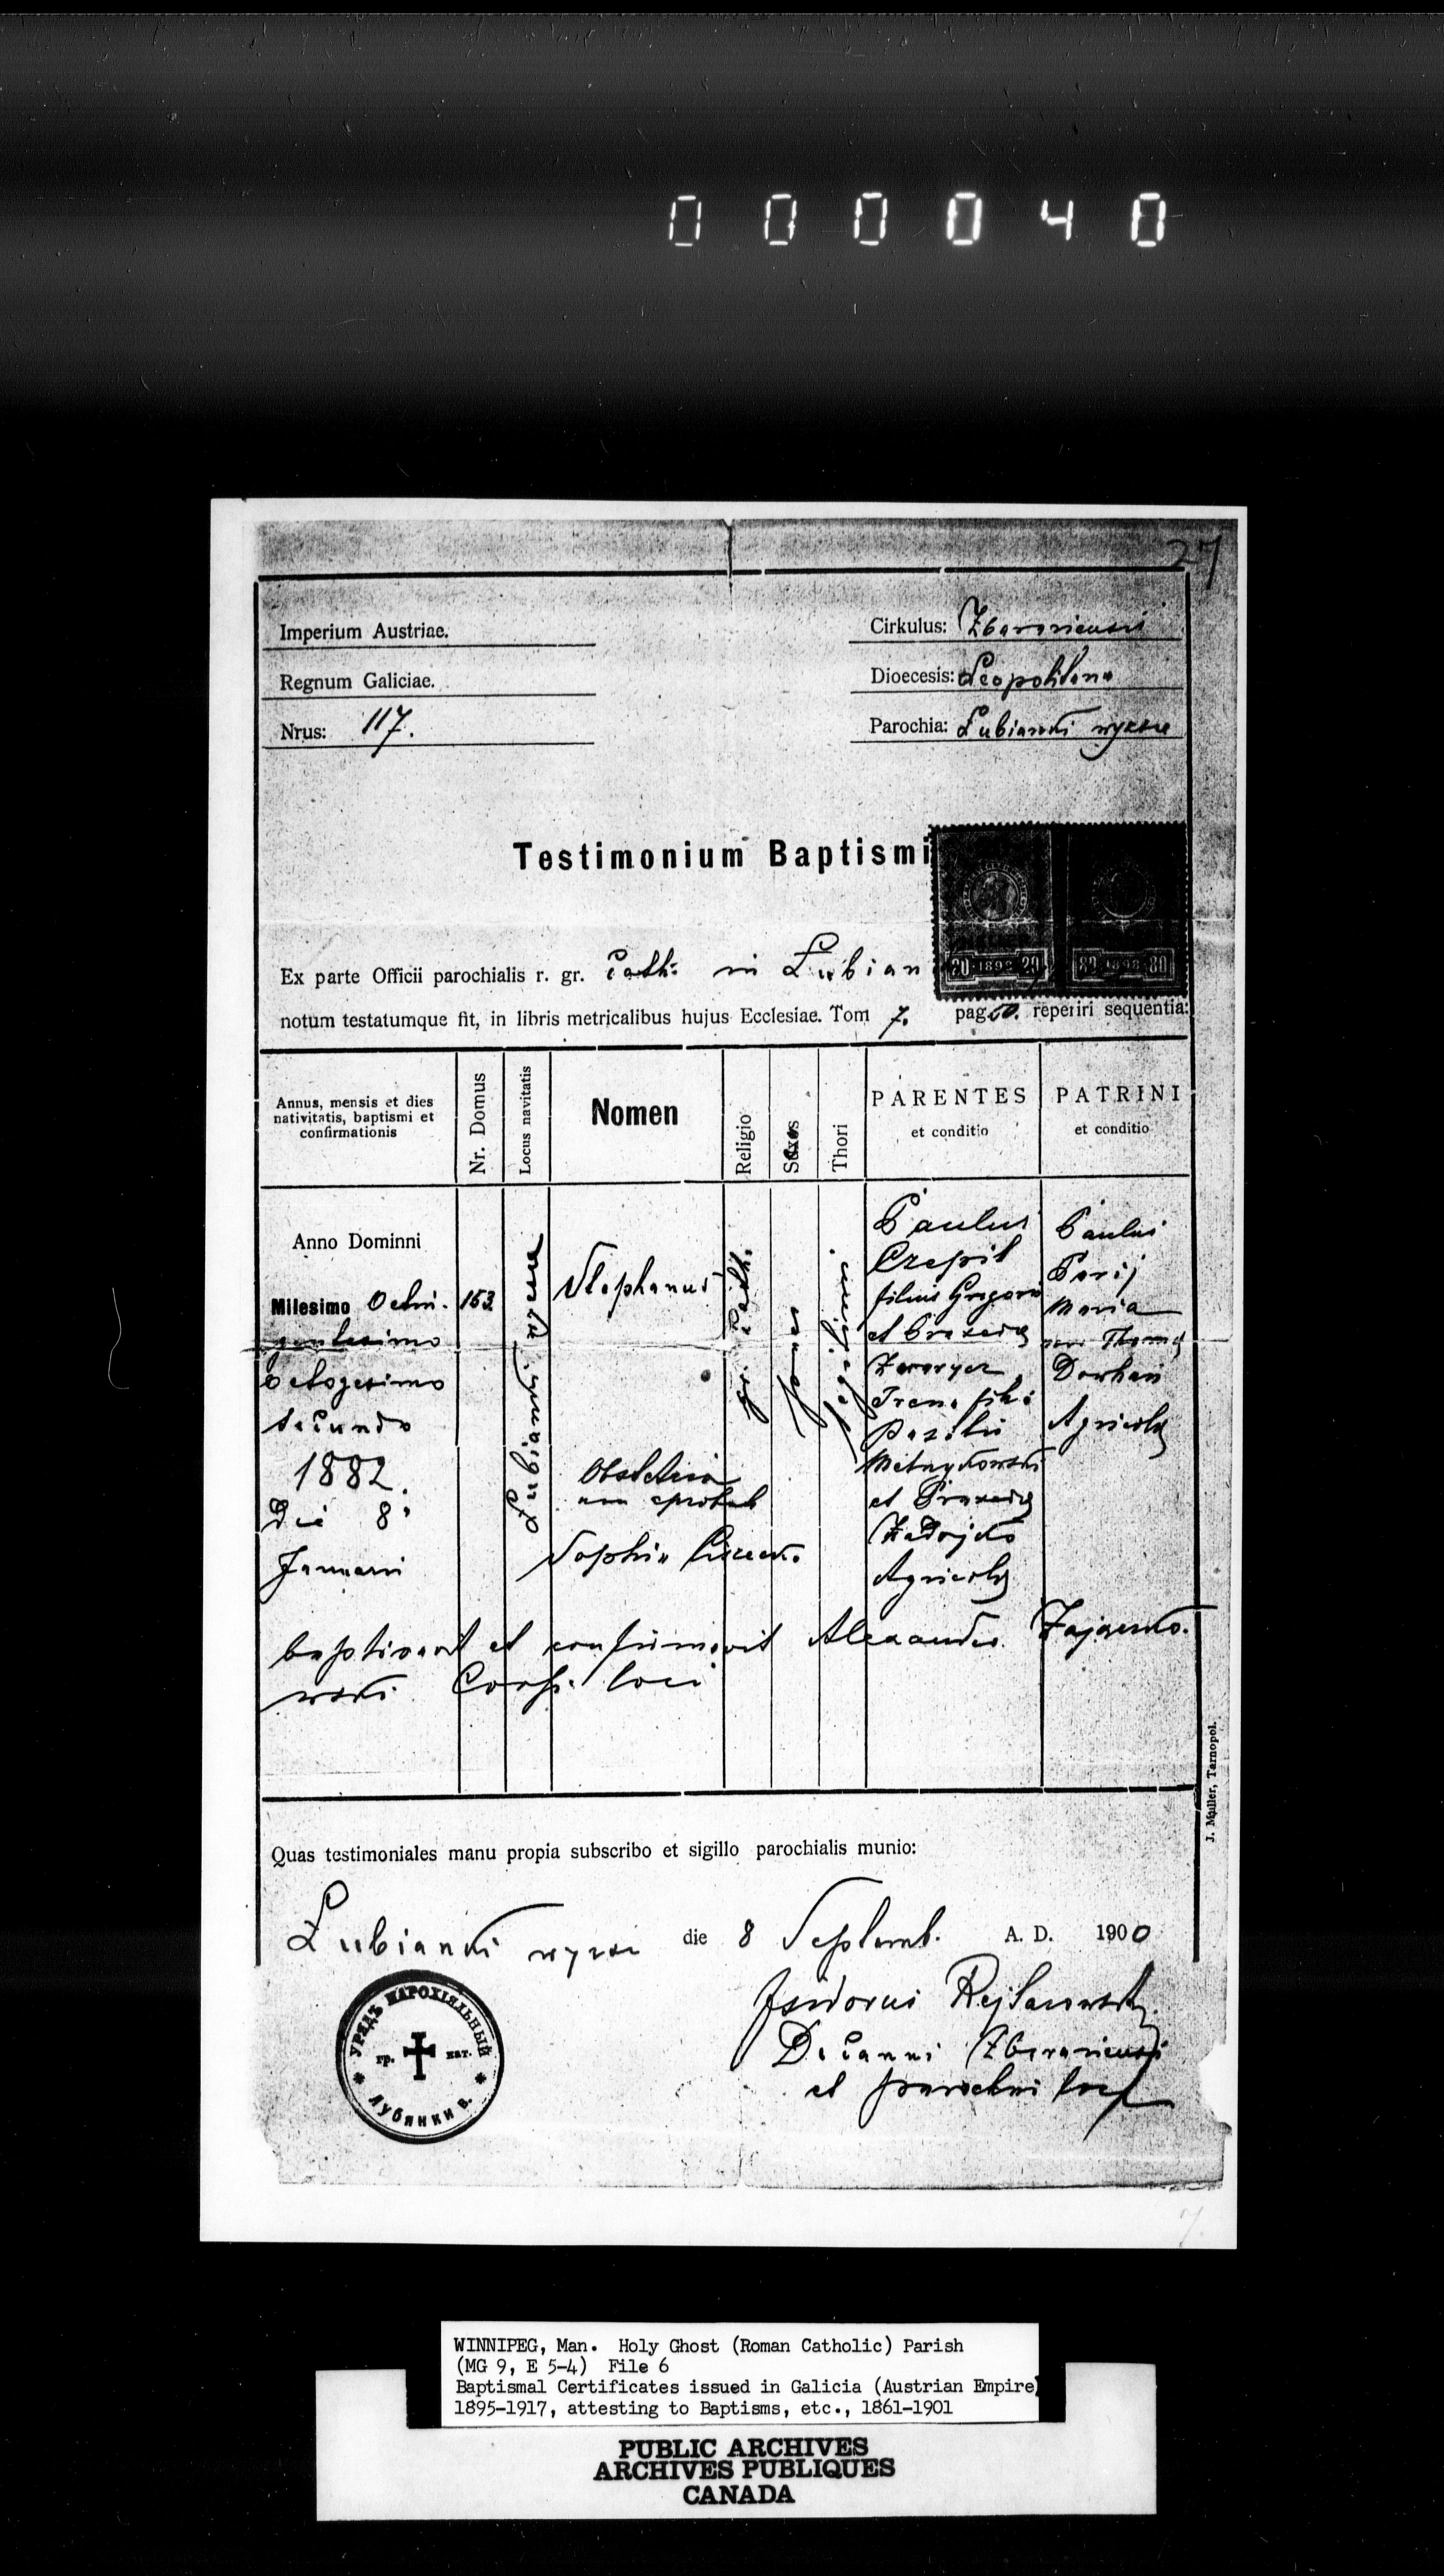 000040
27
Imperium Austriae.
Cirkulus: Zbaraziensis
Regnum Galiciae.
Dioecesis: Leopoliena
Nrus: 117.
Parochia: Łubianki wyższe
Testimonium Baptismi
Ex parte Officii parochialis r. gr. Cath: in Łubian
20 1898 20 80 1898 80
notum testatumque fit, in libris metricalibus hujus Ecclesiae. Tom 7. pag. 50. reperiri sequentia:
Annus, mensis et dies nativitatis, baptismi et confirmationis
Nr. Domus
Locus navitatis
Nomen
Religio
Sexus
Thori
PARENTES
et conditio
PATRINI
et conditio
Anno Dominni
Milesimo Octin-
gentesimo
Octogesimo
secundo
1882.
Die 8
Januari
153
Łubianki wyższe
Stephanus
Obstetrix
non aprobat
Sophia
gr. Cath.
legitimi
Paulus
Czepil
filius Gregorii
et Praxeda
Zwarycz
Irena filia
Basilii
Melnykowski
et Praxeda
Zadojko
Agricola
Paulus
Parij
Maria
uxor Thoma
Dorhan
Agricola
baptisavit et confirmavit Alexander Zajaczko-
wski Coop. loci
J. Muller, Tarnopol.
Quas testimoniales manu propia subscribo et sigillo parochialis munio:
Łubianki wyższe die 8 Septemb. A. D. 1900
Isidorus
Decanus Zbaraziensis
et parochus loci
УРЯДЪ ПАРОХІЯЛЬНЫЙ
гр. кат.
Лубянки в.
7.
WINNIPEG, Man. Holy Ghost (Roman Catholic) Parish
(MG 9, E 5-4) File 6
Baptismal Certificates issued in Galicia (Austrian Empire)
1895-1917, attesting to Baptisms, etc., 1861-1901
PUBLIC ARCHIVES
ARCHIVES PUBLIQUES
CANADA